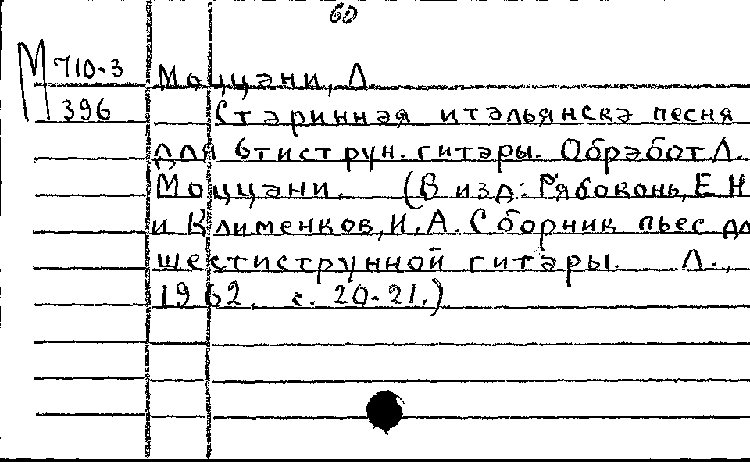 60
М 710-3 Моццани, Л.
396 Старинная итальянска песня
для 6тиструн. гитары. Обработ. Л.
Моццани. (В изд: Рябоконь, Е Н
и Клименков, И. А. Сборник пьес дл
шестиструнной гитары. Л.,
1962. с. 20-21.)